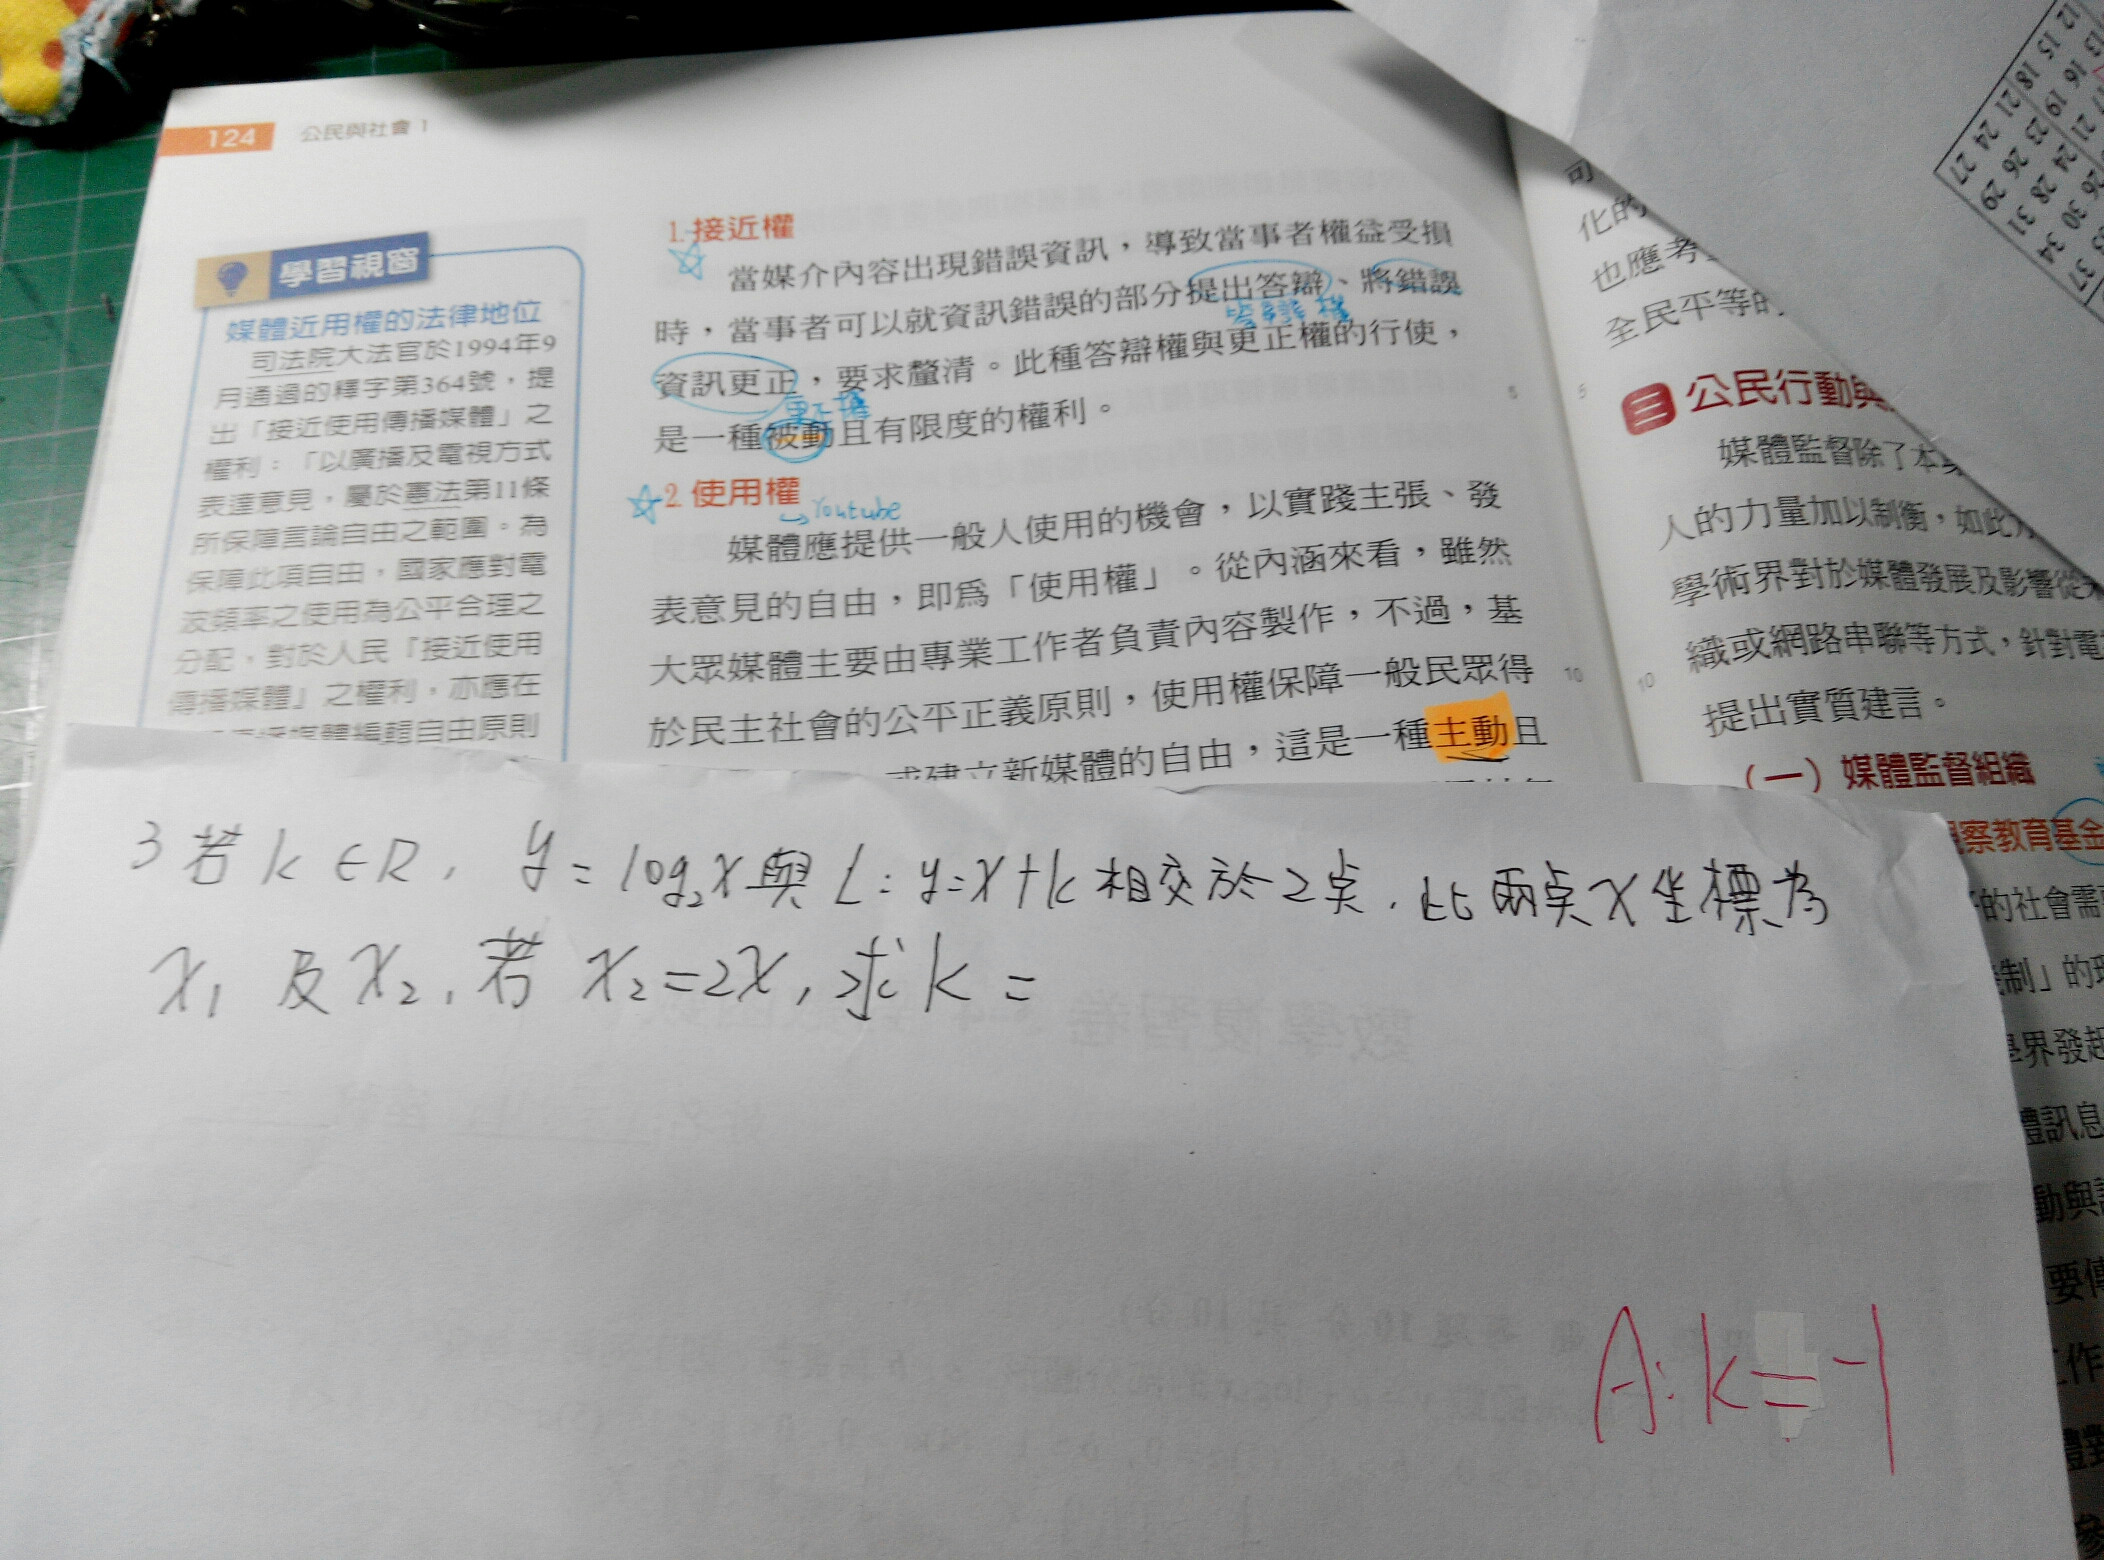 124 公民與社會 1
學習視窗
媒體近用權的法律地位
司法院大法官於1994年9
月通過的釋字第364號，提
出「接近使用傳播媒體」之
權利：「以廣播及電視方式
表達意見，屬於憲法第11條
所保障言論自由之範圍。為
保障此項自由，國家應對電
波頻率之使用為公平合理之
分配，對於人民「接近使用
傳播媒體」之權利，亦應在
媒體編輯自由原則
1. 接近權
當媒介內容出現錯誤資訊，導致當事者權益受損
時，當事者可以就資訊錯誤的部分提出答辯、將錯誤
答辯權
資訊更正，要求釐清。此種答辯權與更正權的行使，
更正權
是一種被動且有限度的權利。
5
2 使用權
Youtube
媒體應提供一般人使用的機會，以實踐主張、發
表意見的自由，即為「使用權」。從內涵來看，雖然
大眾媒體主要由專業工作者負責內容製作，不過，基
於民主社會的公平正義原則，使用權保障一般民眾得
10
或建立新媒體的自由，這是一種主動且
司
化的
也應考
全民平等的
5
三 公民行動與
媒體監督除了本
人的力量加以制衡，如此
學術界對於媒體發展及影響從
織或網路串聯等方式，針對電
10
提出實質建言。
（一）媒體監督組織
察教育基金
的社會需
制」的
界發起
體訊息
動與
要傳
工作
體
參
12 15 18 21 24 27
13 16 19 23 26 29
17 21 24 28 31
26 30 34
37
3 若 k ∈ R, y = log₂x 與 L: y=x+k 相交於2点, 此兩点x坐標為
x₁ 及 x₂, 若 x₂=2x, 求 k =
A: k = -1